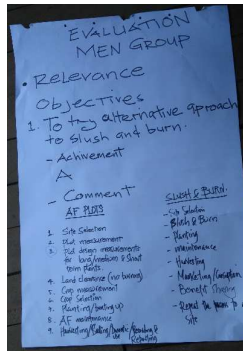 EVALUATION
MEN GROUP
• Relevance
Objectives
1. To try alternative aproach
to slush and burn.
- Achivement
A
- Comment
AF PLOTS
1. Site Selection
2. Plot measurement
3. Plot design measurements
for long/medium & short
term plants.
4. Land clearance (no burning)
5. Crop measurement
6. Crop Selection
7. Planting/beating up
8. AF maintenance
9. Harvesting/
SLUSH & BURN.
- Site Selection
- Slush & Burn
- Planting
- maintenance
- Harvesting
- Marketing/Consumption
- Benefit Sharing
- Repeat the process to
site